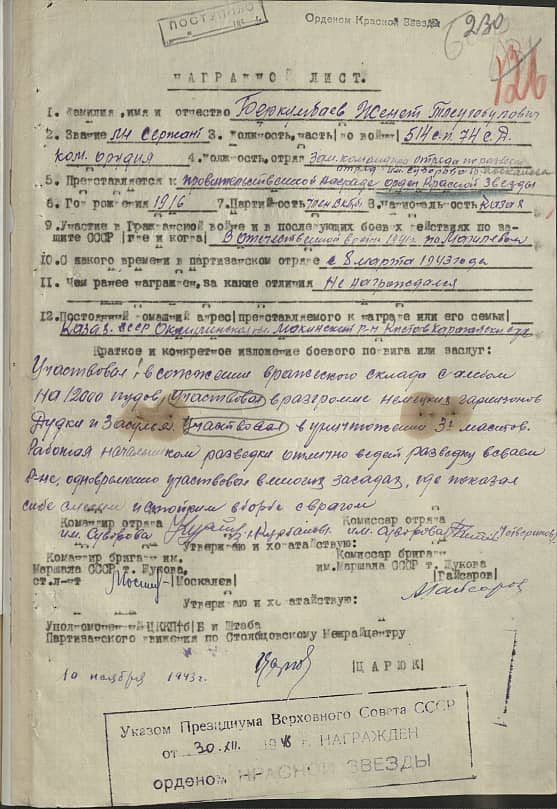 ПОСТУПИЛО
Орденом Красной Звезды
230
126
НАГРАДНОЙ ЛИСТ.
1. Фамилия, имя и отчество Беркумбаев Женет Тлеугобулович
2. Звание мл сержант 3. должность, часть |во войне| 514 с.п. 74 с.д.
ком. орудия 4. должность, отряд Зам. командира отряда по разведке
отряд им. Суворова
5. Представляется к правительственной награде орден Красной Звезды
6. Год рождения 1916 7. Партийность член ВКП(б) 8. национальность казах
9. Участие в Гражданской войне и в последующих боевых действиях по за-
щите СССР |где и когда| В отечественной войне 1941г. под Могилевом
10. С какого времени в партизанском отряде с 8 марта 1943 года
11. Чем ранее награжден, за какие отличия Не награждался
12. Постоянный домашний адрес |представляемого к награде или его семьи|
Казах. ССР Макинский р-н
Краткое и конкретное изложение боевого подвига или заслуг:
Участвовал в сожжении вражеского склада с
на 12000 пудов, Участвовал в разгроме немецких гарнизонов
Дудки и Засулье. Участвовал в уничтожении 3х мостов.
Работая начальником разведки отлично ведет разведку в своем
р-не, одновременно участвовал в многих засадах, где показал
себя смелым и стойким в борьбе с врагом
Командир отряда Комиссар отряда
им. Суворова им. Суворова
Утверждаю и ходатайствую:
Командир бригады им. Комиссар бригады
Маршала СССР т. Жукова, им. Маршала СССР т. Жукова
ст. л-нт |Москалев| |Гайсаров|
Утверждаю и ходатайствую:
Уполномоченный ЦККП|б|Б и Штаба
Партизанского движения по Столбцовскому Межрайцентру
|ЦАРЮК|
10 ноября 1943г.
Указом Президиума Верховного Совета СССР
от 30.XII. 1948 г. НАГРАЖДЕН
орденом КРАСНОЙ ЗВЕЗДЫ